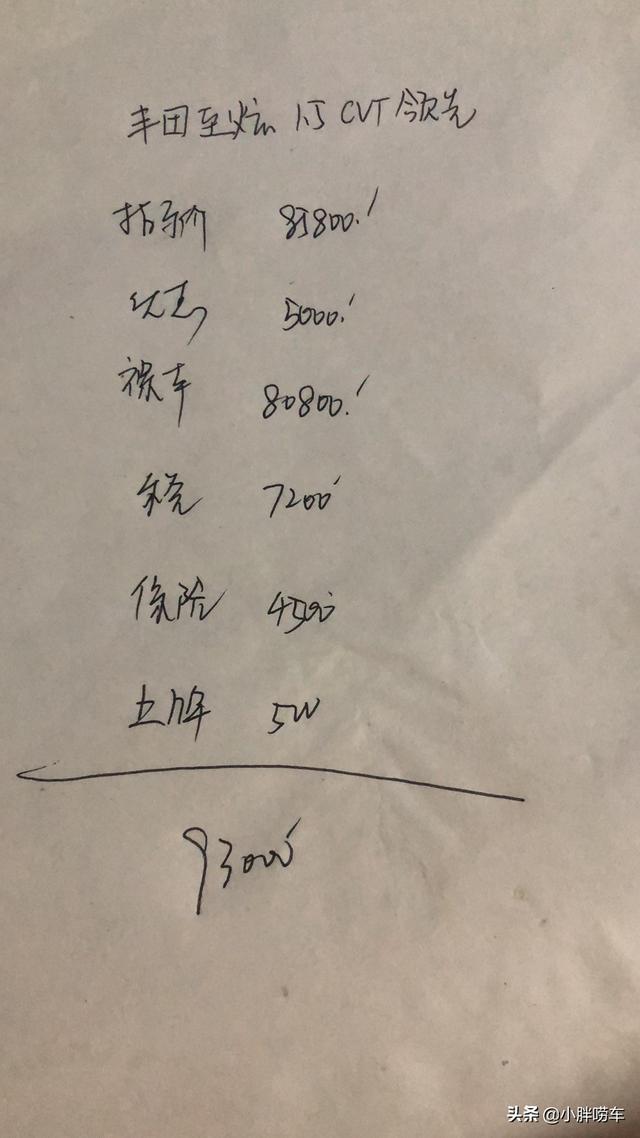 丰田至炫 1.5 CVT 领先
指导价 85800.
优惠 5000.
裸车 80800.
税 7200
保险 4500
上牌 500
93000
头条 @小胖唠车